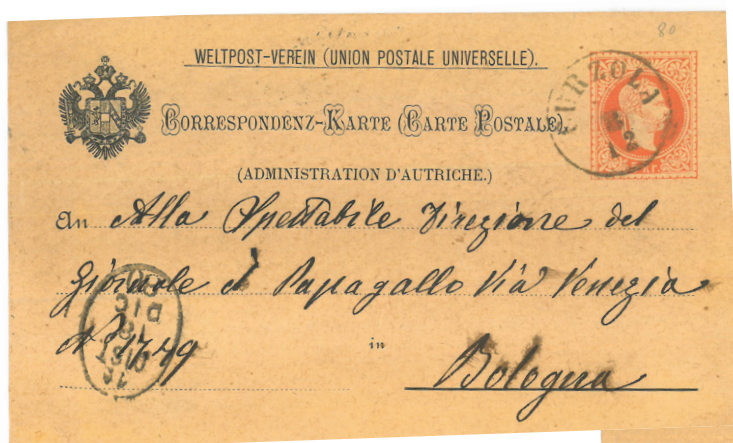 80
WELTPOST-VEREIN (UNION POSTALE UNIVERSELLE).
CORRESPONDENZ-KARTE (CARTE POSTALE).
(ADMINISTRATION D'AUTRICHE.)
CURZOLA
12
An Alla Spettabile Direzione del
Giornale il Papagallo Via Venezia
N° 1749
in
Bologna
DIC